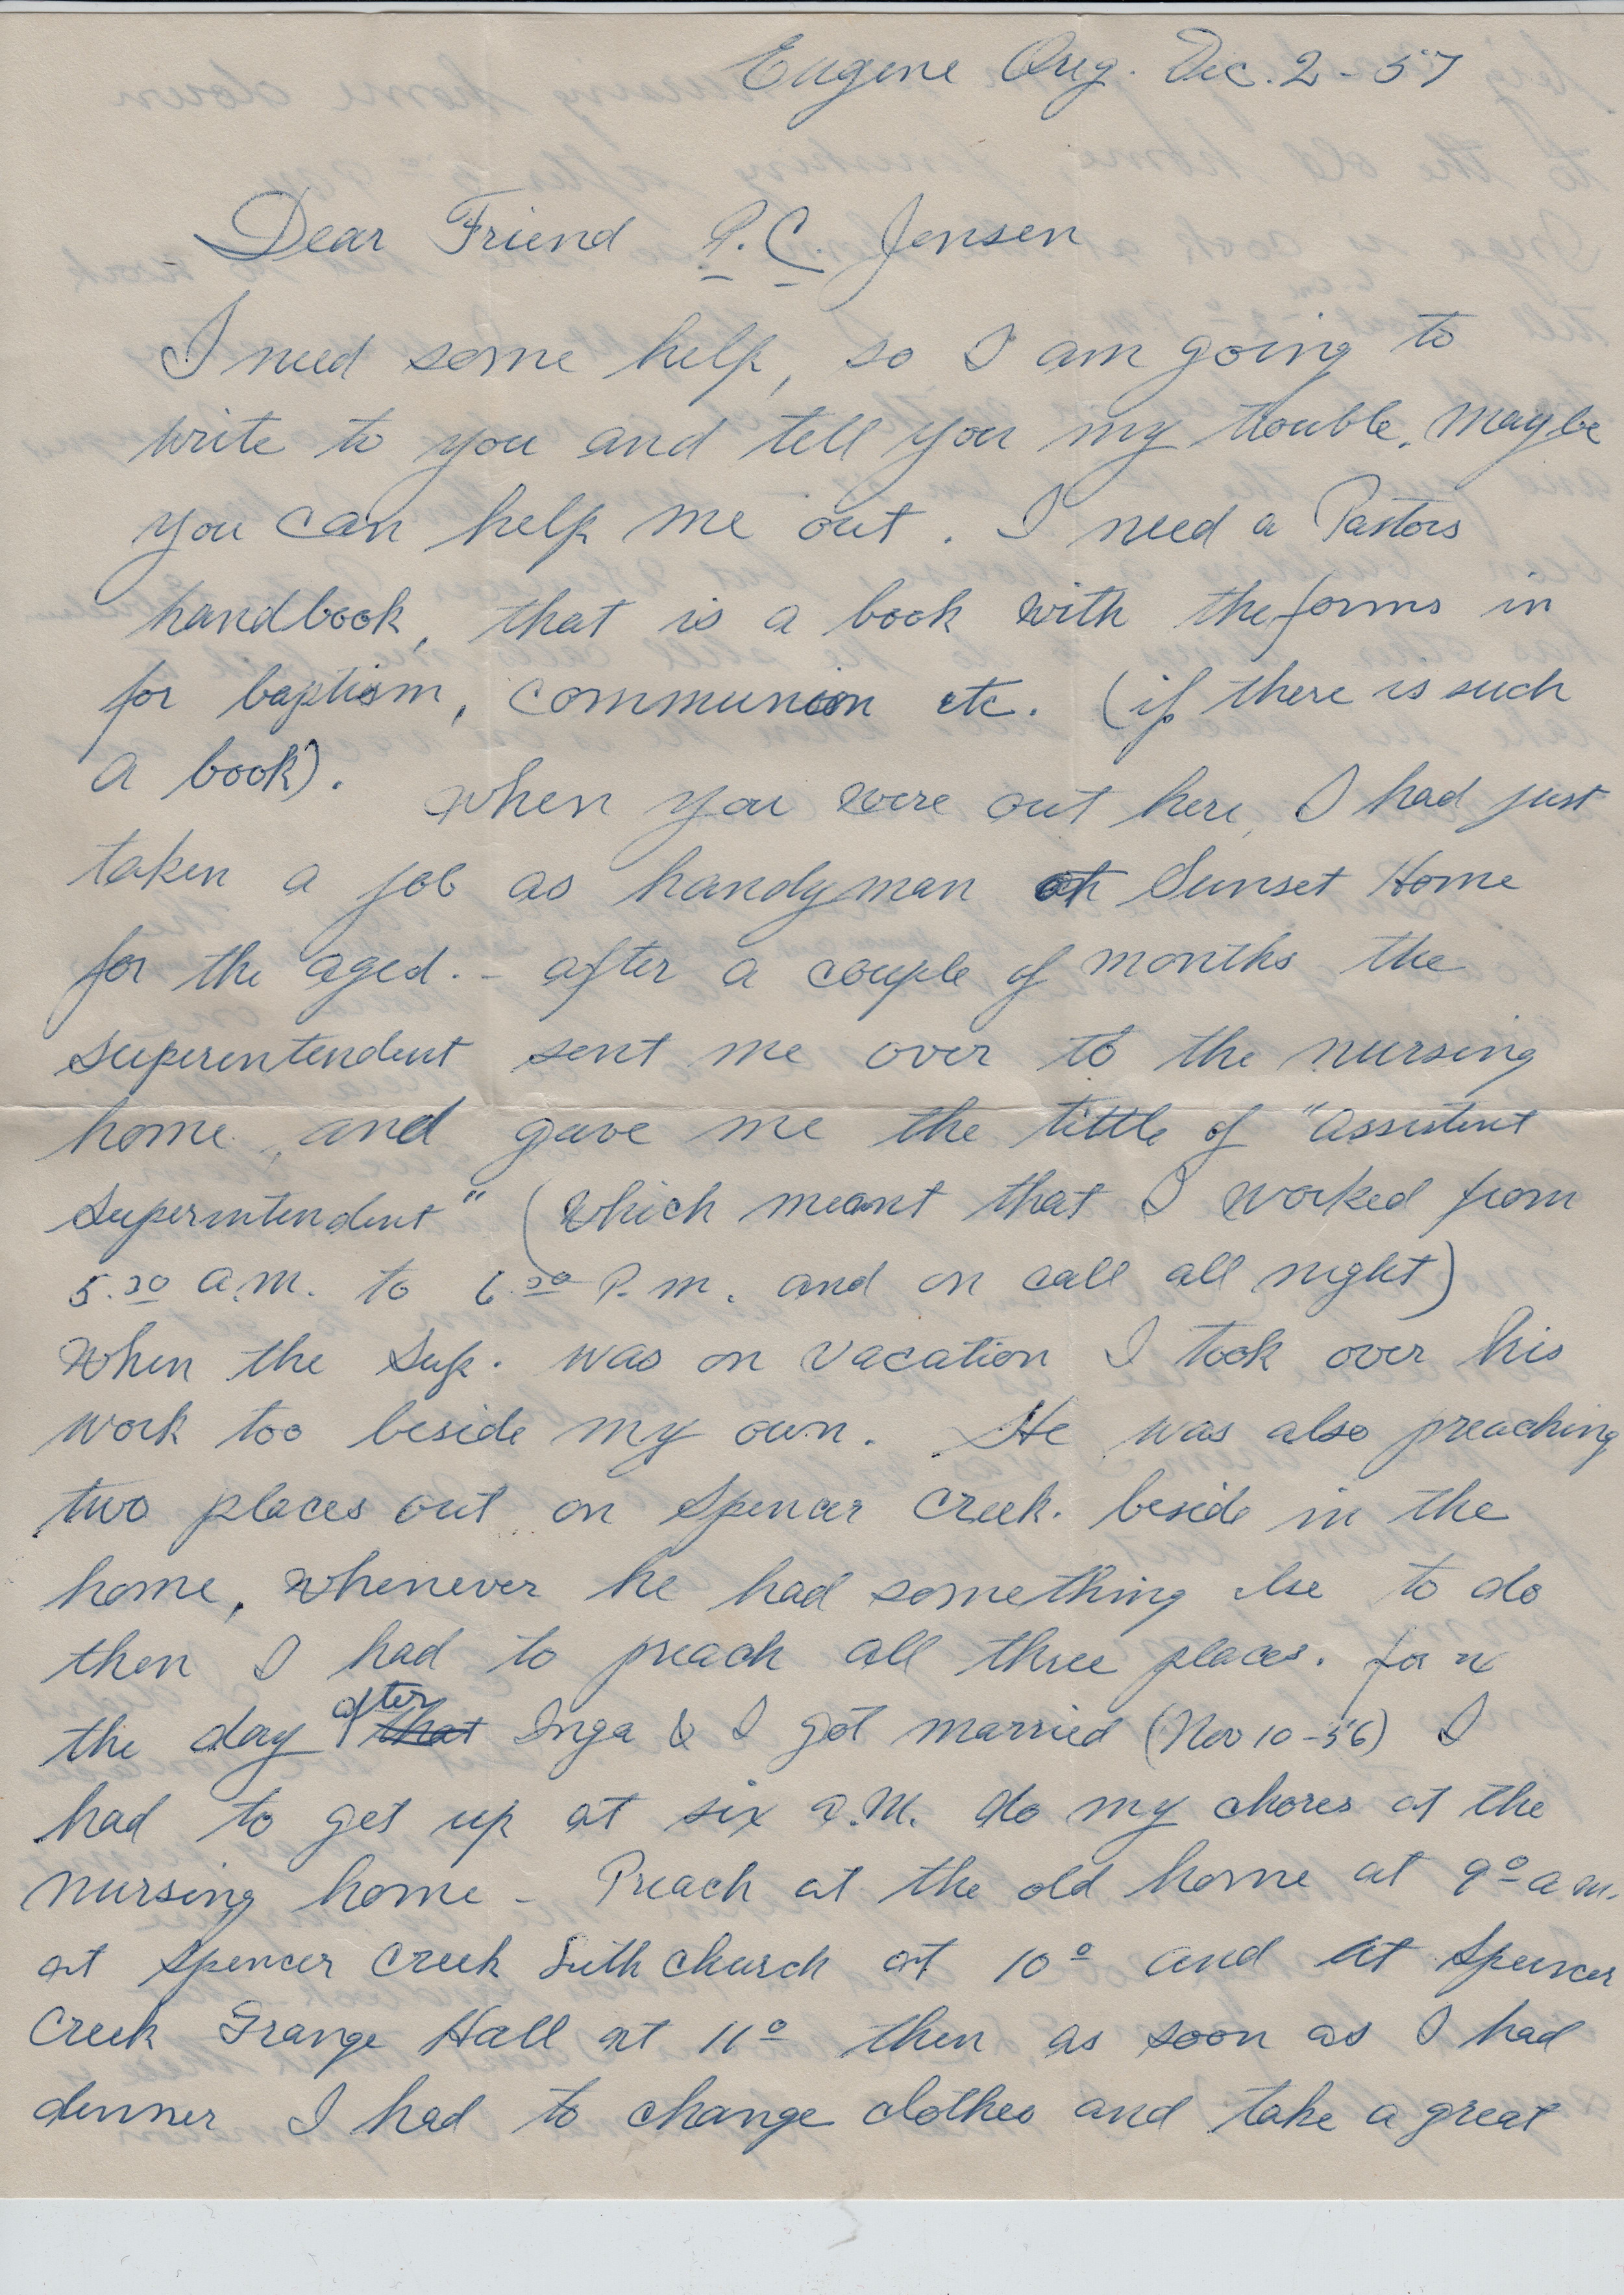 Eugene Oreg. Dec. 2 - 57
Dear Friend P.C. Jensen
I need some help, so I am going to
write to you and tell you my trouble. Maybe
you can help me out. I need a Pastors
handbook, that is a book with the forms in
for baptism, communion etc. (if there is such
a book). When you were out here, I had just
taken a job as handyman at Sunset Home
for the aged. - after a couple of months the
superentendent sent me over to the nursing
home, and gave me the tittle of "assistent
superintendent" (which meant that I worked from
5.30 a.m. to 6.30 P.m. and on call all night)
When the Sup. was on vacation I took over his
work too beside my own. He was also preaching
two places out on Spencer Creek. beside in the
home, whenever he had something else to do
then I had to preach all three places.
the day after that Inga & I got married (Nov 10 - 56) I
had to get up at six a.m. do my chores at the
nursing home - Preach at the old home at 9º a m.
at Spencer Creek Luth Church at 10º and at Spencer
Creek Grange Hall at 11º then as soon as I had
denner I had to change clothes and take a great